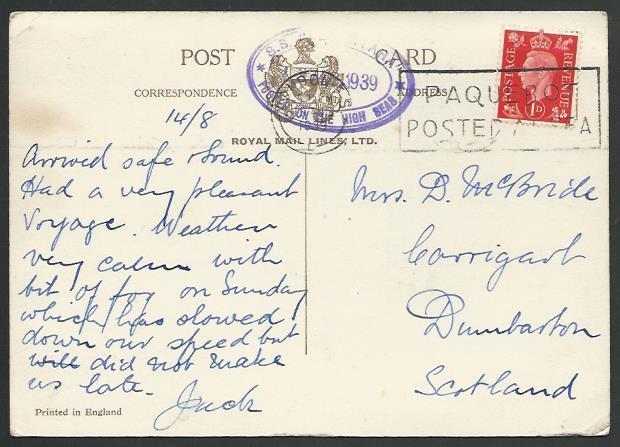 POST CARD
CORRESPONDENCE ADDRESS
S.S.
1939
POSTED ON THE HIGH SEAS
POSTAGE REVENUE
1D
PAQUEBOT
POSTED A
ROYAL MAIL LINES, LTD.
14/8
Arrived safe & sound.
Had a very pleasant
Voyage. Weather
very calm with
bit of fog on Sunday
which has slowed
down our speed but
will did not make
us late.
Jack
Mrs. D. McBride
Corrigart
Dumbarton
Scotland
Printed in England